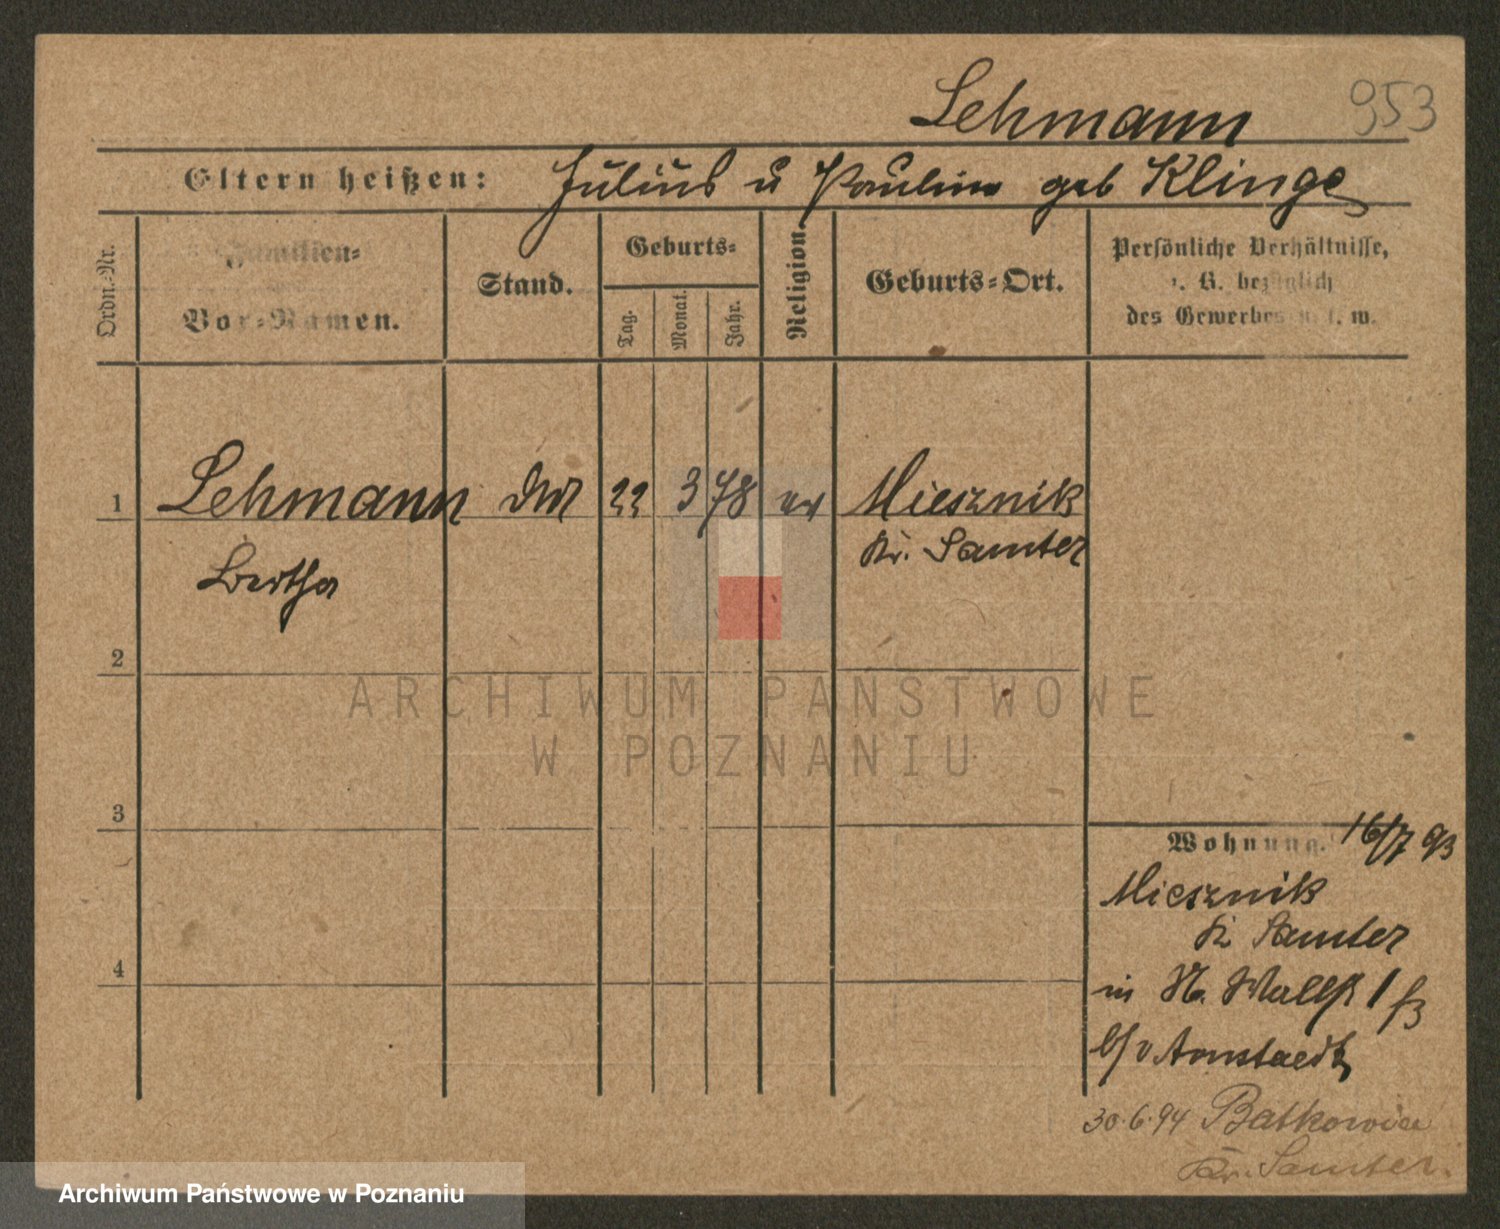 Lehmann 953
Eltern heißen: Julius u Pauline geb Klinge
Ordn.-Nr.
Familien-
Vor-Namen.
Stand.
Geburts-
Tag.
Monat.
Jahr.
Religion.
Geburts-Ort.
Persönliche Verhältnisse,
z. B. bezüglich
des Gewerbes u. s. w.
1 Lehmann 22 3 78 ev Miesznik
Bertha Kr. Samter
2
ARCHIWUM PAŃSTWOWE
W POZNANIU
3
Wohnung. 16/7 93
Miesznik
Kr Samter
4
in N. Wallstr 1
b/v Arnstaedt
30.6.94 Batkowice
Kr. Samter.
Archiwum Państwowe w Poznaniu